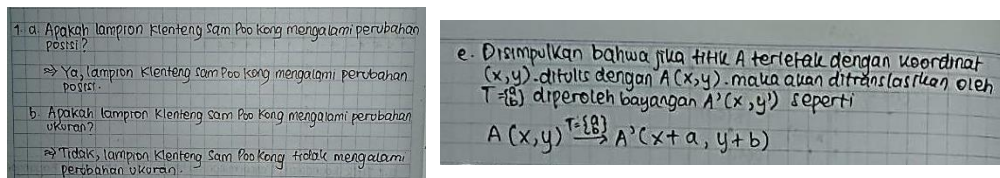 1. a. Apakah lampion Klenteng Sam Poo Kong mengalami perubahan
posisi?
⇒ Ya, lampion Klenteng Sam Poo Kong mengalami perubahan
posisi.
b. Apakah lampion Klenteng Sam Poo Kong mengalami perobahan
ukuran?
⇒ Tidak, lampion Klenteng Sam Poo Kong tidak mengalami
perobahan ukuran.
e. Disimpulkan bahwa jika titik A terletak dengan koordinat
(x,y). ditulis dengan A(x,y). maka akan ditranslasikan oleh
T={a b} diperoleh bayangan A'(x,y') seperti
A (x,y) T={a b} → A'(x+a, y+b)